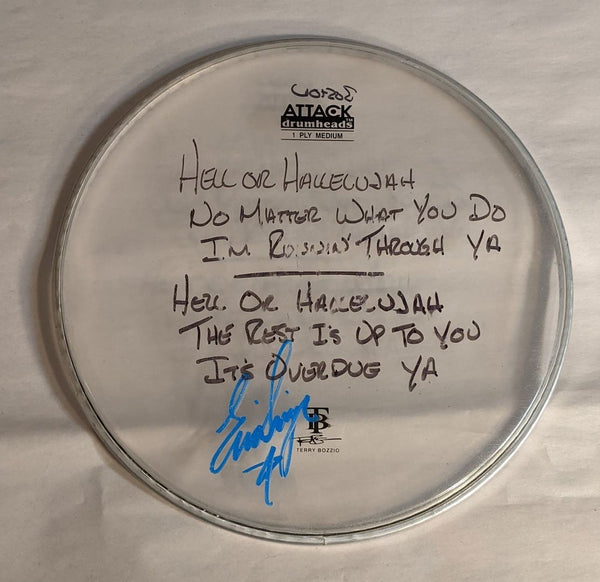 ATTACK
drumheads
1 PLY MEDIUM
HELL OR HALLELUJAH
NO MATTER WHAT YOU DO
I'M RUNNIN' THROUGH YA
HELL OR HALLELUJAH
THE REST IS UP TO YOU
IT'S OVERDUE YA
TB
TERRY BOZZIO